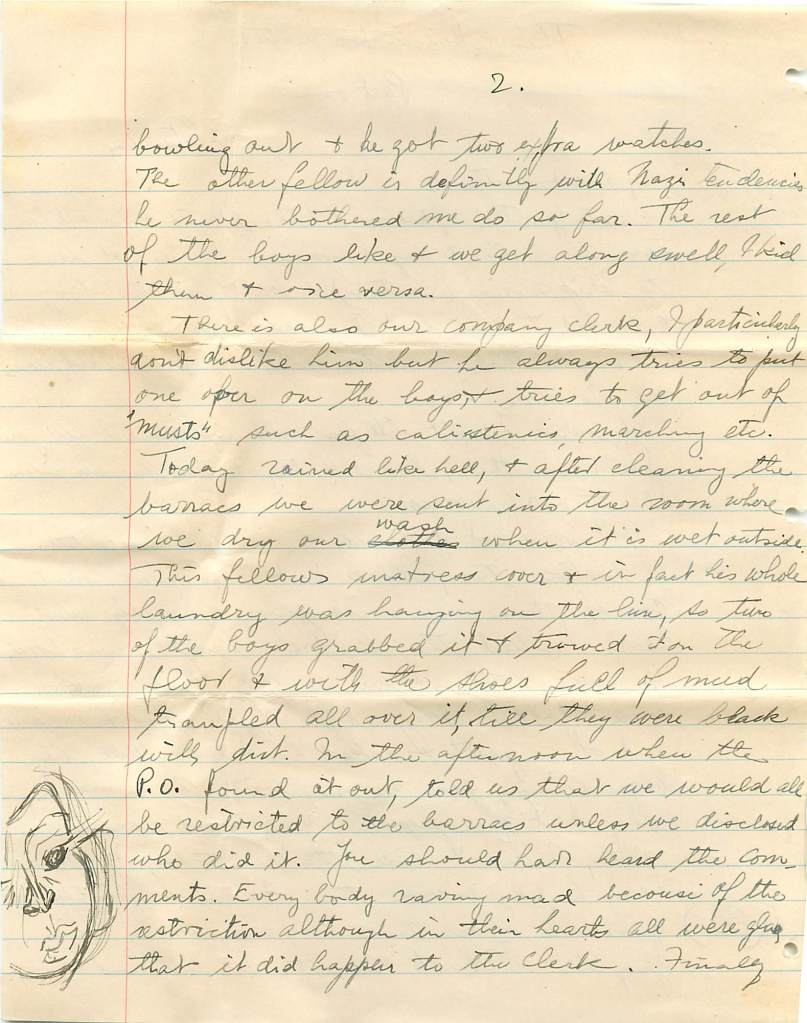 2.
bowling out & he got two extra watches.
The other fellow is definitly with Nazi tendencies
he never bothered me do so far. The rest
of the boys like & we get along swell, I kid
them & vice versa.
There is also our company clerk, I particularly
don't dislike him but he always tries to put
one over on the boys, & tries to get out of
"musts" such as calistenics, marching etc.
Today rained like hell, & after cleaning the
barracs we were sent into the room where
we dry our wash when it is wet outside.
This fellows matress cover & in fact his whole
laundry was hanging on the line, so two
of the boys grabbed it & trowed it on the
floor & with the shoes full of mud
trampled all over it, till they were black
with dirt. In the afternoon when the
P.O. found it out, told us that we would all
be restricted to the barracs unless we disclosed
who did it. You should have heard the com-
ments. Every body raving mad becouse of the
restriction although in their hearts all were glad
that it did happen to the Clerk. Finaly